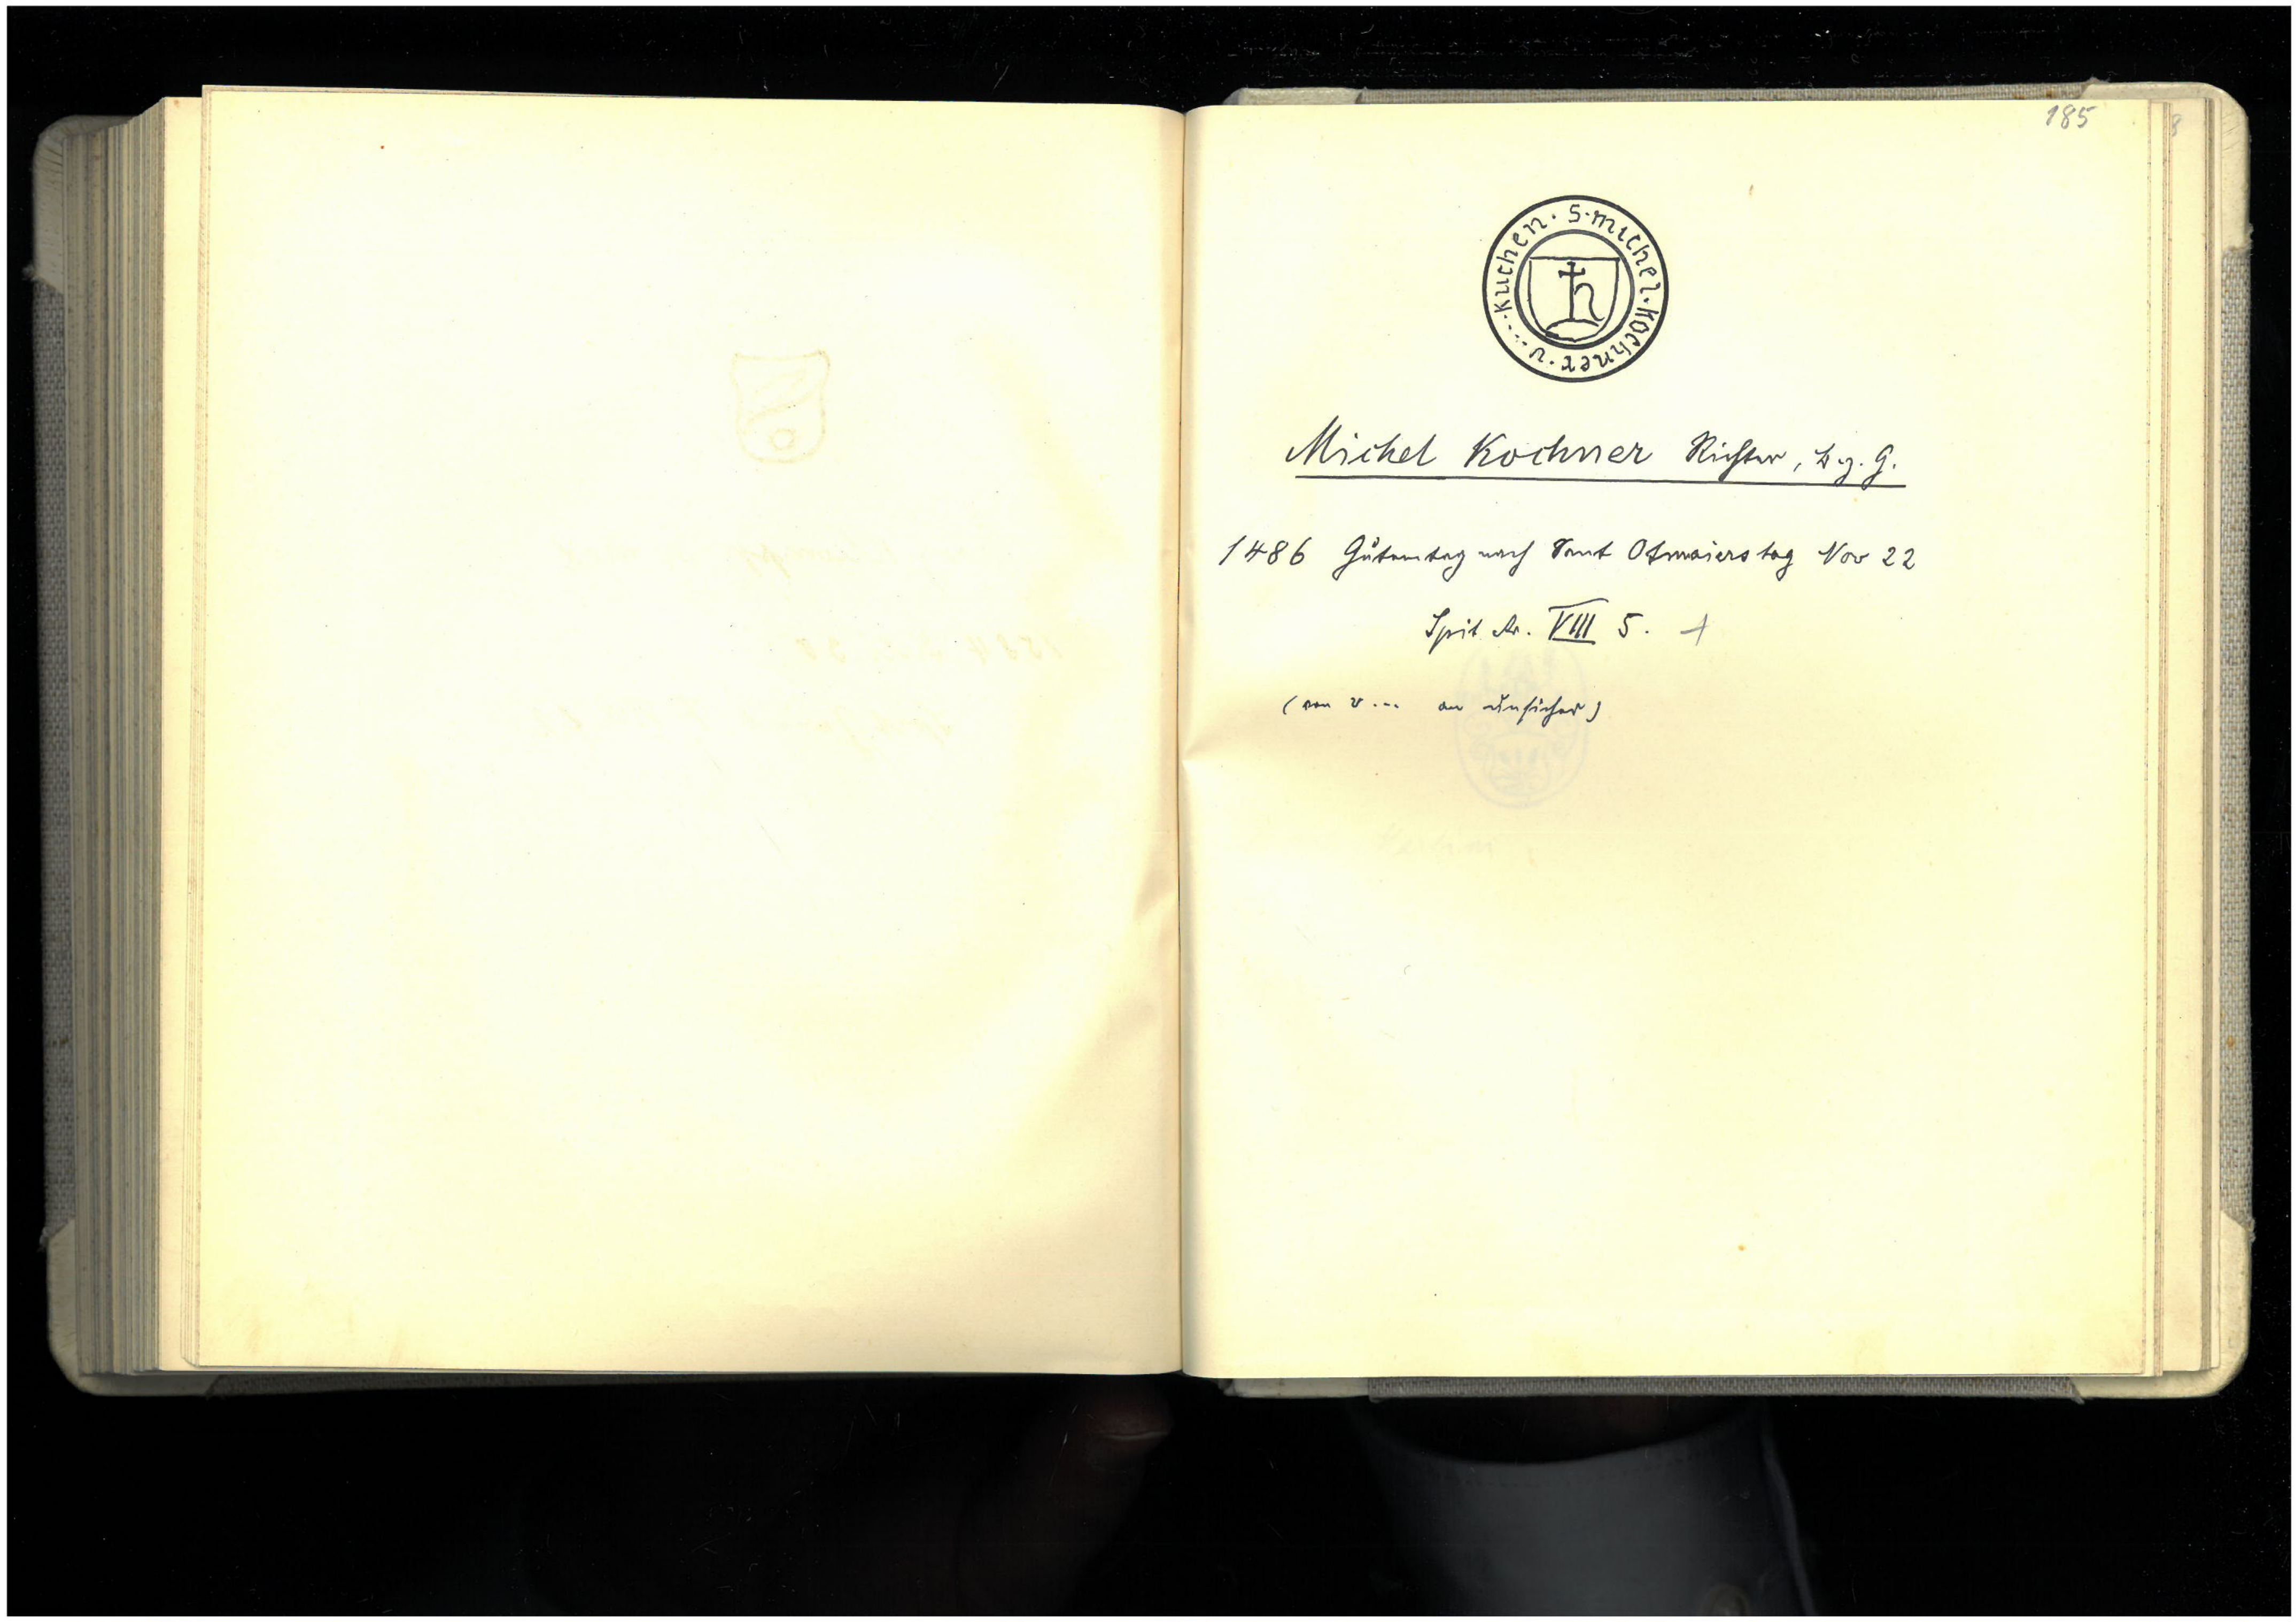 185
S · michel · kochner · v · - - - kuchen ·
Michel Kochner Richter, z. g. G.
1486 Gůtemtag nach Sant Otmaiers tag Nov 22
Spit Ar. VIII 5. +
(von v... an unsicher)